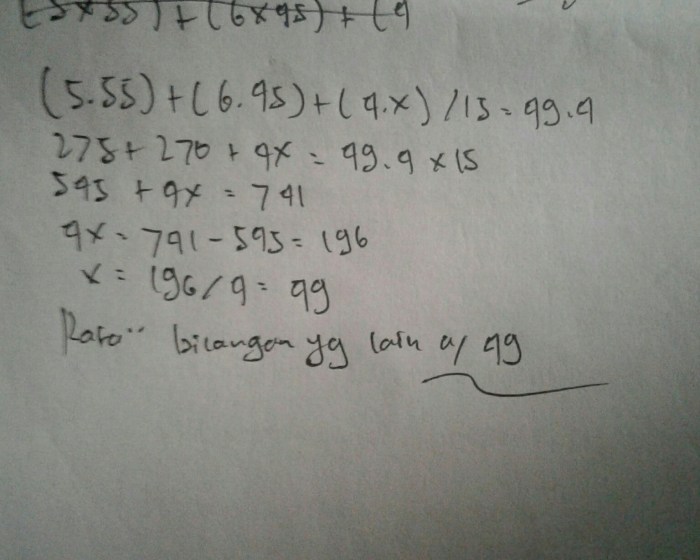 (5x55) + (6x45) + (4
(5.55) + (6.45) + (4.x) /15 = 49.4
275 + 270 + 4x = 49.4 x 15
545 + 4x = 741
4x = 741 - 545 = 196
x = 196/4 = 49
Rata" bilangan yg lain a/ 49